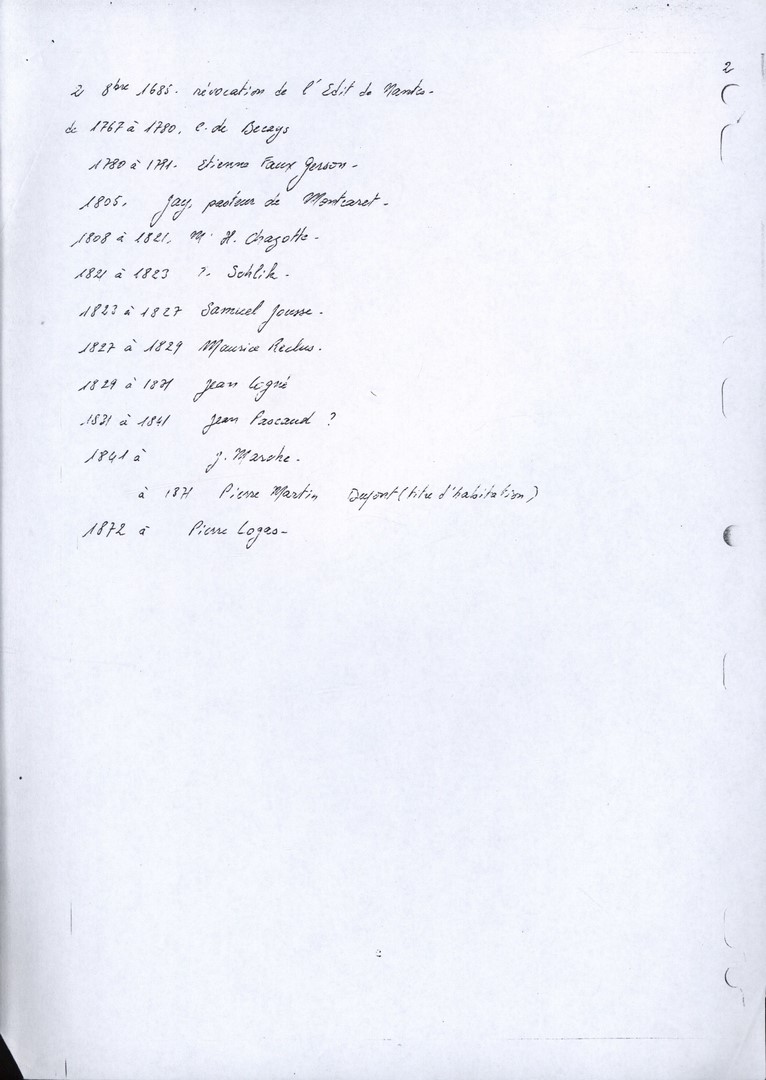 2
2 8bre 1685. révocation de l'Edit de Nantes.
de 1767 à 1780. C. de Becays
1780 à 1791. Etienne Faux Gerson.
1805. Jay, pasteur de Montcaret.
1808 à 1821. Mr H. Chazotte.
1821 à 1823 ?. Sohlik.
1823 à 1827 Samuel Jousse.
1827 à 1829 Maurice Reclus.
1829 à Jean Ligné
1831 à 1841 Jean Pascaud ?
1841 à J. Marche.
à 1871 Pierre Martin Dupont (titre d'habitation)
1872 à Pierre Logas.